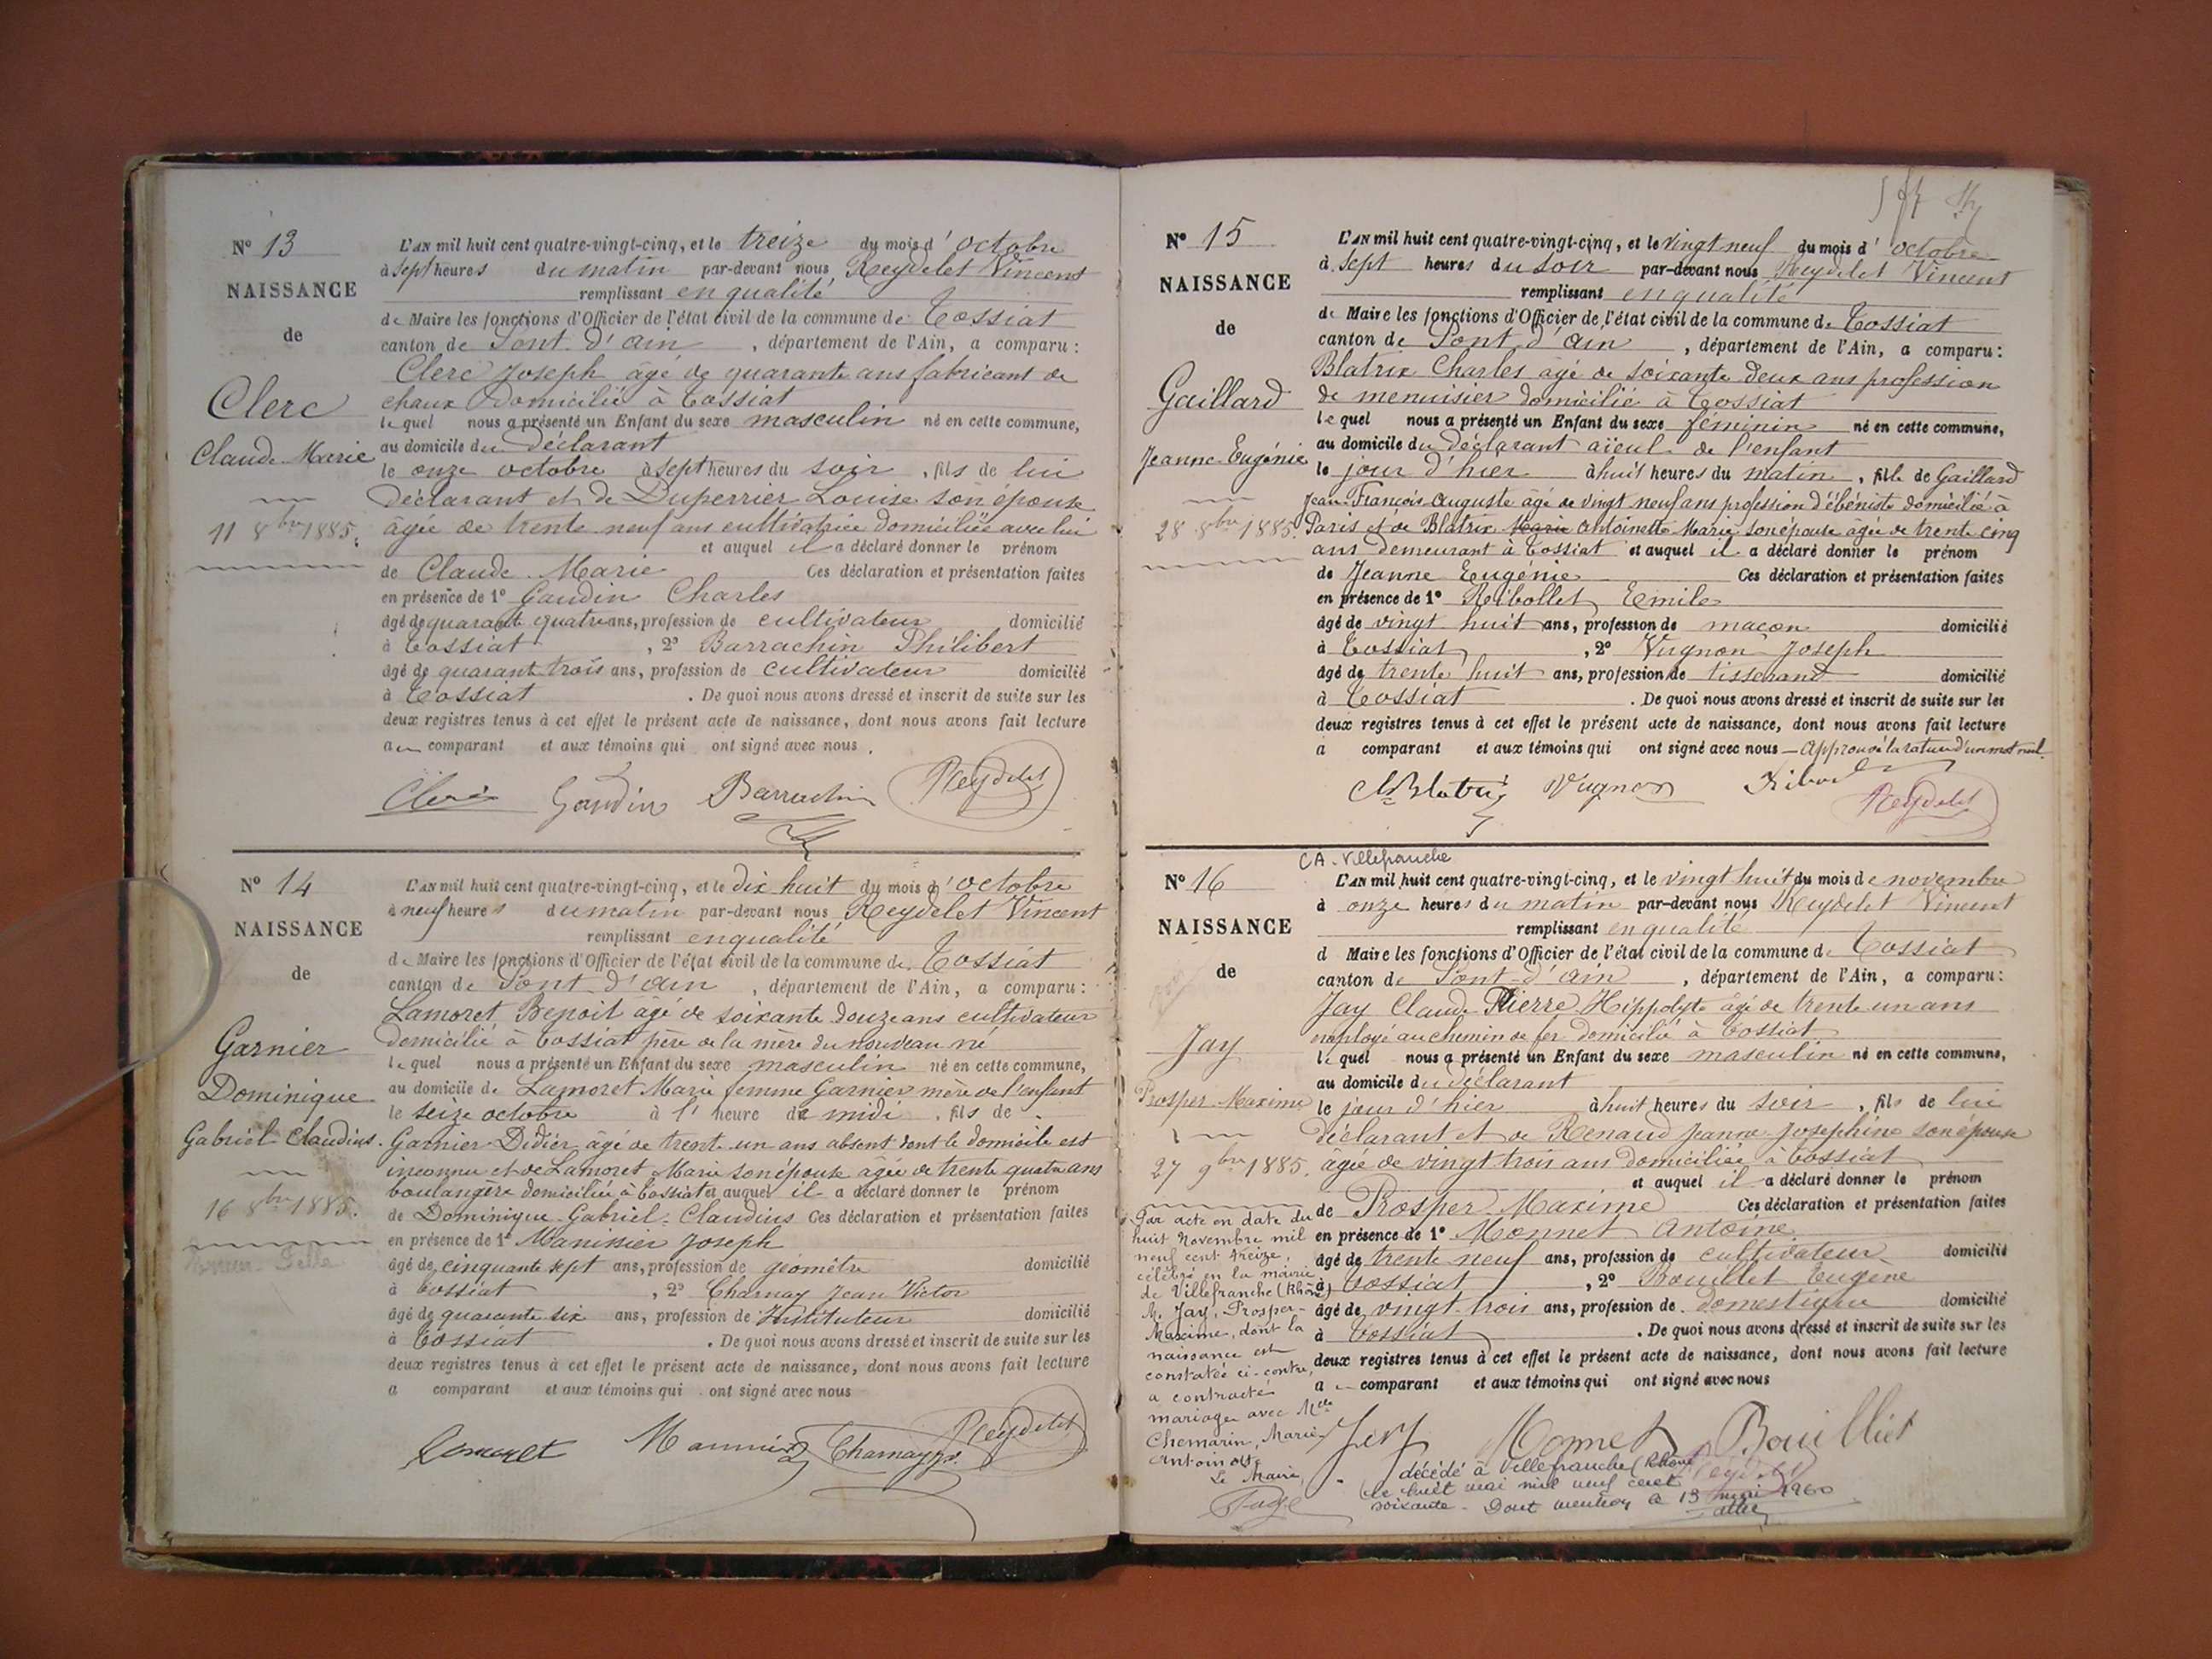 N° 13
NAISSANCE
de
Clerc
Claude Marie
11 8bre 1885.
L'AN mil huit cent quatre-vingt-cinq, et le treize du mois d'octobre
à sept heures du matin par-devant nous Reydelet Vincent
remplissant en qualité
de Maire les fonctions d'Officier de l'état civil de la commune de Tossiat
canton de Pont d'ain, département de l'Ain, a comparu :
Clerc Joseph âgé de quarante ans fabricant de
chaux domicilié à Tossiat
lequel nous a présenté un Enfant du sexe masculin né en cette commune,
au domicile du déclarant
le onze octobre à sept heures du soir, fils de lui
déclarant et de Duperrier Louise son épouse
âgée de trente neuf ans cultivatrice domiciliée avec lui
et auquel il a déclaré donner le prénom
de Claude Marie Ces déclaration et présentation faites
en présence de 1° Gaudin Charles
âgé de quarante quatre ans, profession de cultivateur domicilié
à Tossiat, 2° Barrachin Philibert
âgé de quarante trois ans, profession de cultivateur domicilié
à Tossiat. De quoi nous avons dressé et inscrit de suite sur les
deux registres tenus à cet effet le présent acte de naissance, dont nous avons fait lecture
au comparant et aux témoins qui ont signé avec nous.
Clerc Gaudin Barrachin Reydelet
N° 14
NAISSANCE
de
Garnier
Dominique
Gabriel Claudius.
16 8bre 1885.
L'AN mil huit cent quatre-vingt-cinq, et le dix huit du mois d'octobre
à neuf heures du matin par-devant nous Reydelet Vincent
remplissant en qualité
de Maire les fonctions d'Officier de l'état civil de la commune de Tossiat
canton de Pont d'ain, département de l'Ain, a comparu :
Lamoret Benoit âgé de soixante douze ans cultivateur
domicilié à Tossiat père de la mère du nouveau né
lequel nous a présenté un Enfant du sexe masculin né en cette commune,
au domicile de Lamoret Marie femme Garnier mère de l'enfant
le seize octobre à l'heure de midi, fils de
Garnier Didier âgé de trente un ans absent dont le domicile est
inconnu et de Lamoret Marie son épouse âgée de trente quatre ans
boulangère domiciliée à Tossiat et auquel il a déclaré donner le prénom
de Dominique Gabriel Claudius Ces déclaration et présentation faites
en présence de 1° Manissier Joseph
âgé de cinquante sept ans, profession de géomètre domicilié
à Tossiat, 2° Charnay Jean Victor
âgé de quarante six ans, profession de Instituteur domicilié
à Tossiat. De quoi nous avons dressé et inscrit de suite sur les
deux registres tenus à cet effet le présent acte de naissance, dont nous avons fait lecture
a comparant et aux témoins qui ont signé avec nous
Lamoret Charnay Reydelet
N° 15
NAISSANCE
de
Gaillard
Jeanne Eugénie
28 8bre 1885.
L'AN mil huit cent quatre-vingt-cinq, et le vingt neuf du mois d'octobre
à sept heures du soir par-devant nous Reydelet Vincent
remplissant en qualité
de Maire les fonctions d'Officier de l'état civil de la commune de Tossiat
canton de Pont d'ain, département de l'Ain, a comparu :
Blatrix Charles âgé de soixante deux ans profession
de menuisier domicilié à Tossiat
lequel nous a présenté un Enfant du sexe féminin né en cette commune,
au domicile du déclarant aïeul de l'enfant
le jour d'hier à huit heures du matin, fille de Gaillard
Jean François Auguste âgé de vingt neuf ans profession d'ébéniste domicilié à
Paris et de Blatrix Marie Antoinette Marie son épouse âgée de trente cinq
ans demeurant à Tossiat et auquel il a déclaré donner le prénom
de Jeanne Eugénie Ces déclaration et présentation faites
en présence de 1° Ribollet Emile
âgé de vingt huit ans, profession de maçon domicilié
à Tossiat, 2° Vugnon Joseph
âgé de trente huit ans, profession de tisserand domicilié
à Tossiat. De quoi nous avons dressé et inscrit de suite sur les
deux registres tenus à cet effet le présent acte de naissance, dont nous avons fait lecture
a comparant et aux témoins qui ont signé avec nous – Approuvé la rature d'un mot nul
Blatrix Vugnon Reydelet
CA. Villefranche
N° 16
NAISSANCE
de
Jay
Prosper Maxime
27 9bre 1885.
L'AN mil huit cent quatre-vingt-cinq, et le vingt huit du mois de novembre
à onze heures du matin par-devant nous Reydelet Vincent
remplissant en qualité
d Maire les fonctions d'Officier de l'état civil de la commune de Tossiat
canton de Pont d'ain, département de l'Ain, a comparu :
Jay Claude Pierre Hippolyte âgé de trente un ans
employé au chemin de fer domicilié à Tossiat
lequel nous a présenté un Enfant du sexe masculin né en cette commune,
au domicile du déclarant
le jour d'hier à huit heures du soir, fils de lui
déclarant et de Renaud Jeanne Josephine son épouse
âgée de vingt trois ans domiciliée à Tossiat
et auquel il a déclaré donner le prénom
de Prosper Maxime Ces déclaration et présentation faites
en présence de 1° Monnet Antoine
âgé de trente neuf ans, profession de cultivateur domicilié
à Tossiat, 2° Bouillet Eugène
âgé de vingt trois ans, profession de domestique domicilié
à Tossiat. De quoi nous avons dressé et inscrit de suite sur les
deux registres tenus à cet effet le présent acte de naissance, dont nous avons fait lecture
au comparant et aux témoins qui ont signé avec nous
Jay Monnet Bouillet Reydelet
Par acte en date du
huit Novembre mil
neuf cent treize,
célébré en la mairie
de Villefranche (Rhône)
M. Jay, Prosper-
Maxime, dont la
naissance est
constatée ci-contre,
a contracté
mariage avec Melle
Chemarin, Marie-
Antoinette
Le Maire,
décédé à Villefranche (Rhône)
le huit mai mil neuf cent
soixante - Dont mention le 13 mai 1960